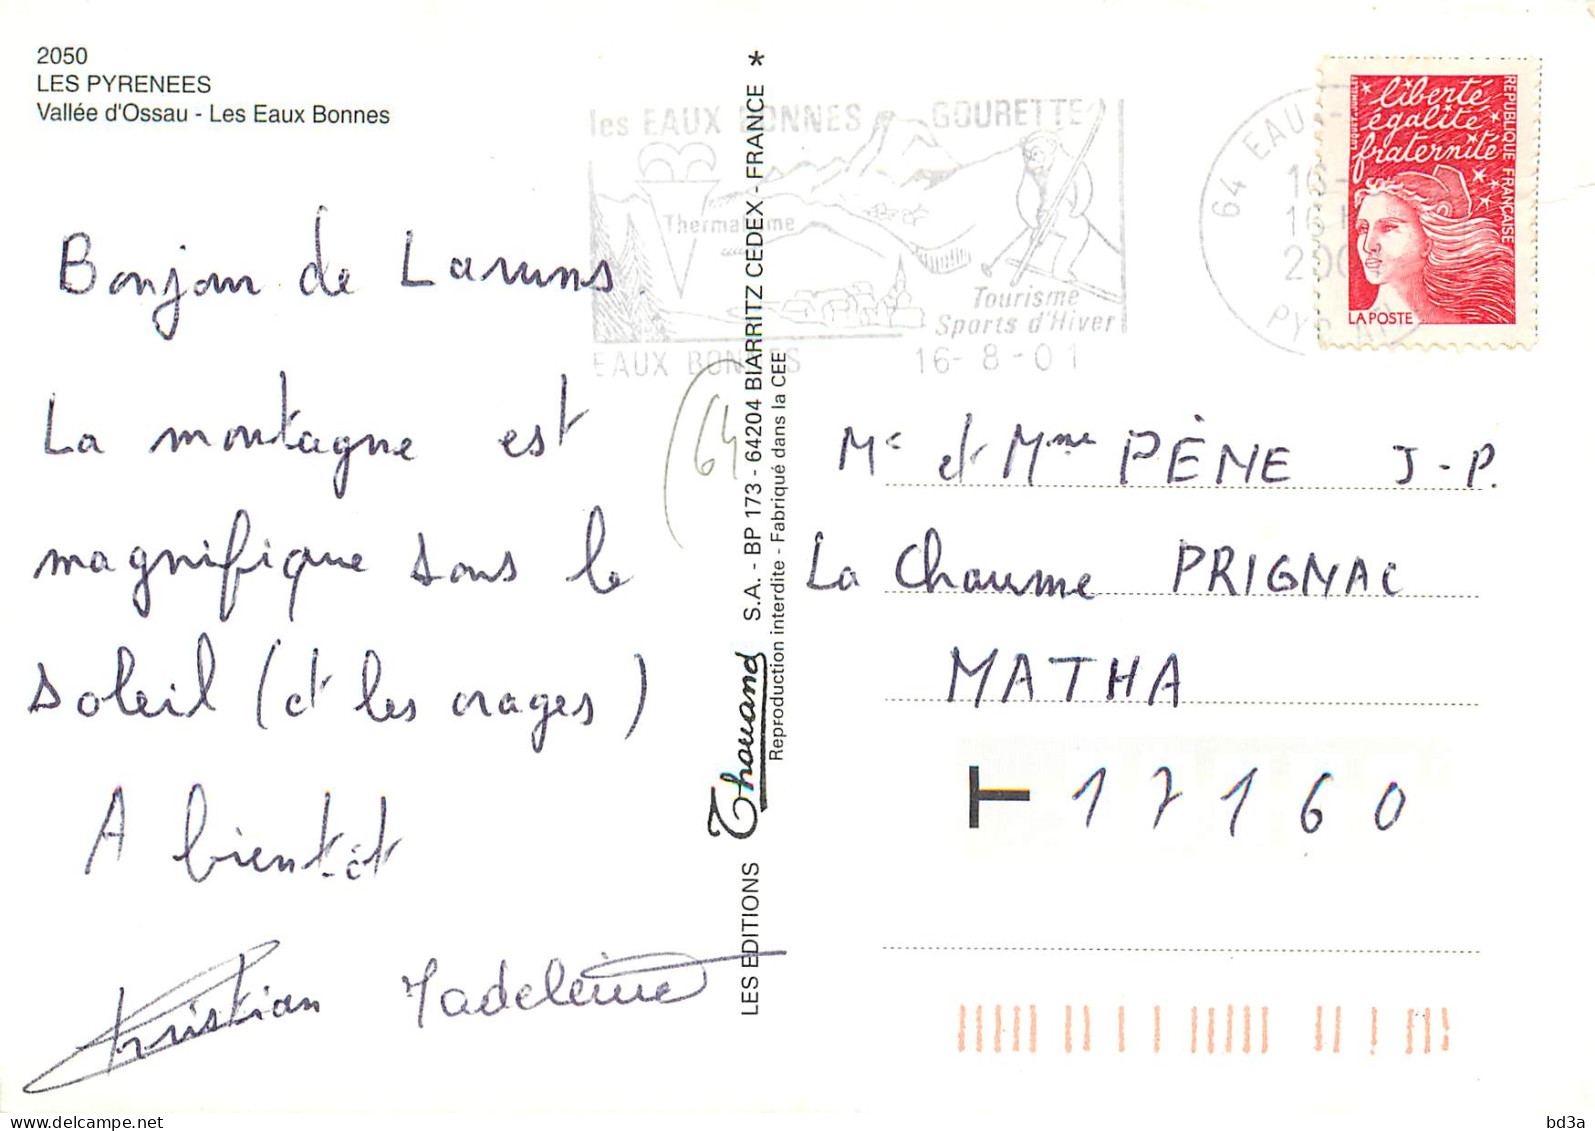 2050
LES PYRENEES
Vallée d'Ossau - Les Eaux Bonnes
Bonjour de Laruns.
La montagne est
magnifique sous le
soleil (et les orages)
A bientôt
Christian Madeleine
les EAUX BONNES GOURETTE
Thermalisme
Tourisme
Sports d'Hiver
EAUX BONNES 16-8-01
(64
LES EDITIONS Thouand S.A. - BP 173 - 64204 BIARRITZ CEDEX - FRANCE *
Reproduction interdite - Fabriqué dans la CEE
64 EAUX-
16-
16 H
200
PYR
liberté
égalité
fraternité
REPUBLIQUE FRANÇAISE
LA POSTE
Mr et Mme PÈNE J-P.
La Chaume PRIGNAC
MATHA
T 17160
bd3a